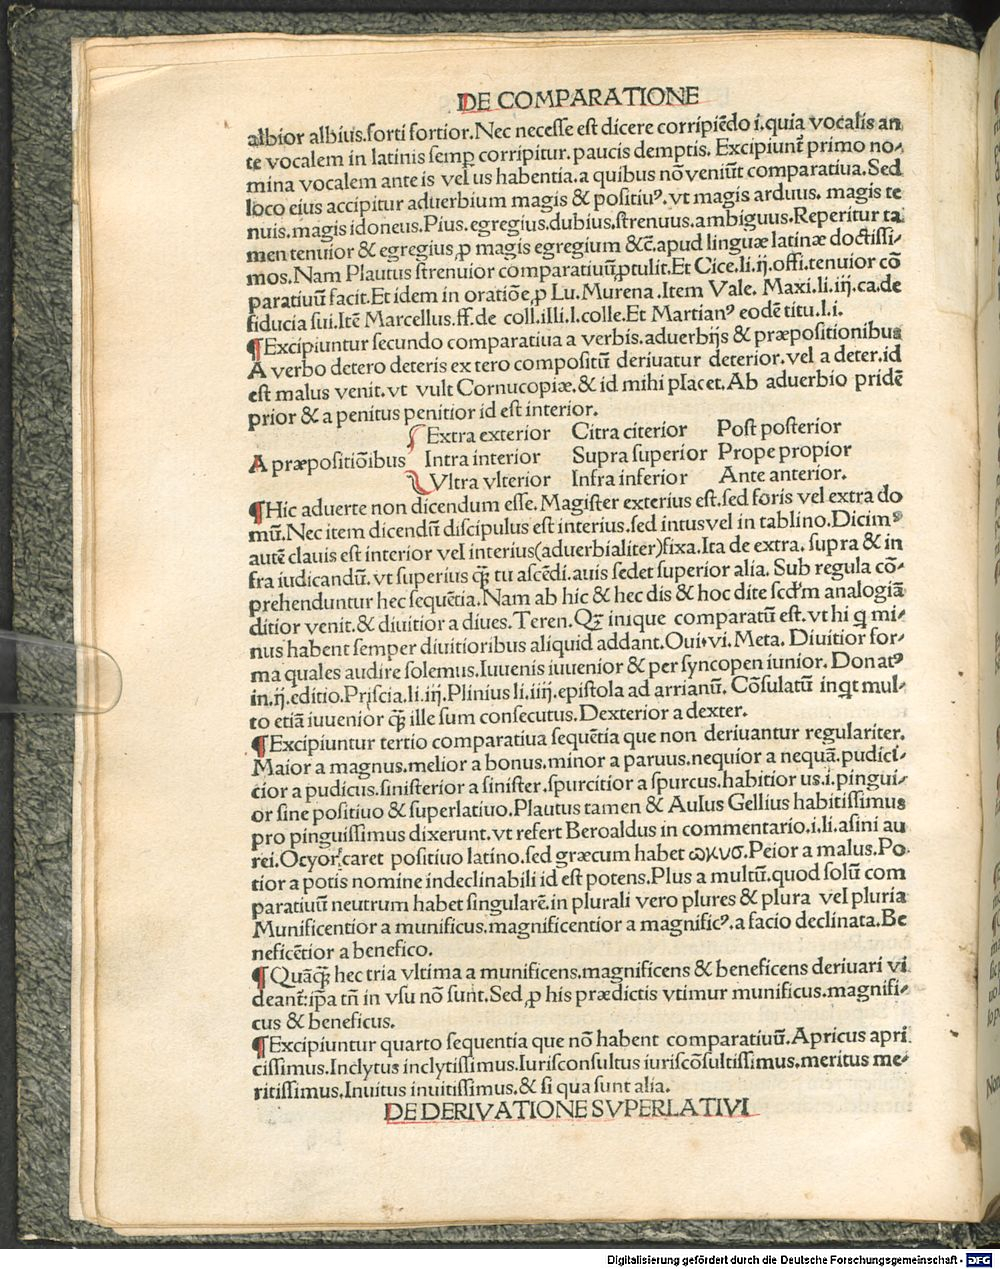 DE COMPARATIONE
albior albius.forti fortior.Nec necesse est dicere corripiẽdo i.quia vocalis an
te vocalem in latinis semꝑ corripitur.paucis demptis. Excipiunt᷑ primo no-
mina vocalem ante is vel us habentia.a quibus nõ veniũt comparatiua.Sed
loco eius accipitur aduerbium magis & positiuꝰ.vt magis arduus. magis te
nuis.magis idoneus.Pius.egregius.dubius.strenuus.ambiguus.Reperitur ta
men tenuior & egregius ꝓ magis egregium &c̃.apud linguæ latinæ doctissi-
mos.Nam Plautus strenuior comparatiuũ ꝓtulit.Et Cice.li.ij.offi.tenuior cõ
paratiuũ facit.Et idem in oratiõe ꝓ Lu.Murena.Item Vale. Maxi.li.iij.ca.de
fiducia sui.Itẽ Marcellus.ff.de coll.illi.l.colle.Et Martianꝰ eodẽ titu.l.i.
¶Excipiuntur secundo comparatiua a verbis.aduerbijs & præpositionibus
A verbo detero deteris ex tero compositũ deriuatur deterior.vel a deter.id
est malus venit.vt vult Cornucopiæ.& id mihi placet.Ab aduerbio pridẽ
prior & a penitus penitior id est interior.
Extra exterior Citra citerior Post posterior
A præpositiõibus Intra interior Supra superior Prope propior
Vltra vlterior Infra inferior Ante anterior.
¶Hic aduerte non dicendum esse. Magister exterius est.sed foris vel extra do
mũ.Nec item dicendũ discipulus est interius.sed intus vel in tablino.Dicimꝰ
autẽ clauis est interior vel interius(aduerbialiter)fixa.Ita de extra. supra & in
fra iudicandũ.vt superius qꝫ̃ tu ascẽdi.auis sedet superior alia. Sub regula cõ-
prehenduntur hec sequẽtia.Nam ab hic & hec dis & hoc dite scd'm analogiã
ditior venit.& diuitior a diues.Teren.Qꝫ inique comparatũ est.vt hi q̃ mi-
nus habent semper diuitioribus aliquid addant.Oui.vi.Meta. Diuitior for-
ma quales audire solemus.Iuuenis iuuenior & per syncopen iunior. Donatꝰ
in.ij.editio.Priscia.li.iij.Plinius li.iiij.epistola ad arrianũ. Cõsulatũ inq̃t mul-
to etiã iuuenior qꝫ̃ ille sum consecutus.Dexterior a dexter.
¶Excipiuntur tertio comparatiua sequẽtia que non deriuantur regulariter.
Maior a magnus.melior a bonus.minor a paruus.nequior a nequã.pudici-
cior a pudicus.sinisterior a sinister.spurcitior a spurcus.habitior us.i.pingui-
or sine positiuo & superlatiuo.Plautus tamen & Aulus Gellius habitissimus
pro pinguissimus dixerunt.vt refert Beroaldus in commentario.i.li.asini au
rei.Ocyor caret positiuo latino.sed græcum habet ωκυσ.Peior a malus.Po
tior a potis nomine indeclinabili id est potens.Plus a multũ.quod solũ com
paratiuũ neutrum habet singularẽ.in plurali vero plures & plura vel pluria
Munificentior a munificus.magnificentior a magnificꝰ.a facio declinata.Be
neficẽtior a benefico.
¶Quãqꝫ̃ hec tria vltima a munificens.magnificens & beneficens deriuari vi
deant᷑.ip̃a tñ in vsu nõ sunt.Sed ꝓ his prædictis vtimur munificus.magnifi-
cus & beneficus.
¶Excipiuntur quarto sequentia que nõ habent comparatiuũ.Apricus apri
cissimus.Inclytus inclytissimus.Iurisconsultus iuriscõsultissimus.meritus me-
ritissimus.Inuitus inuitissimus.& si qua sunt alia.
DE DERIVATIONE SVPERLATIVI
Digitalisierung gefördert durch die Deutsche Forschungsgemeinschaft - DFG